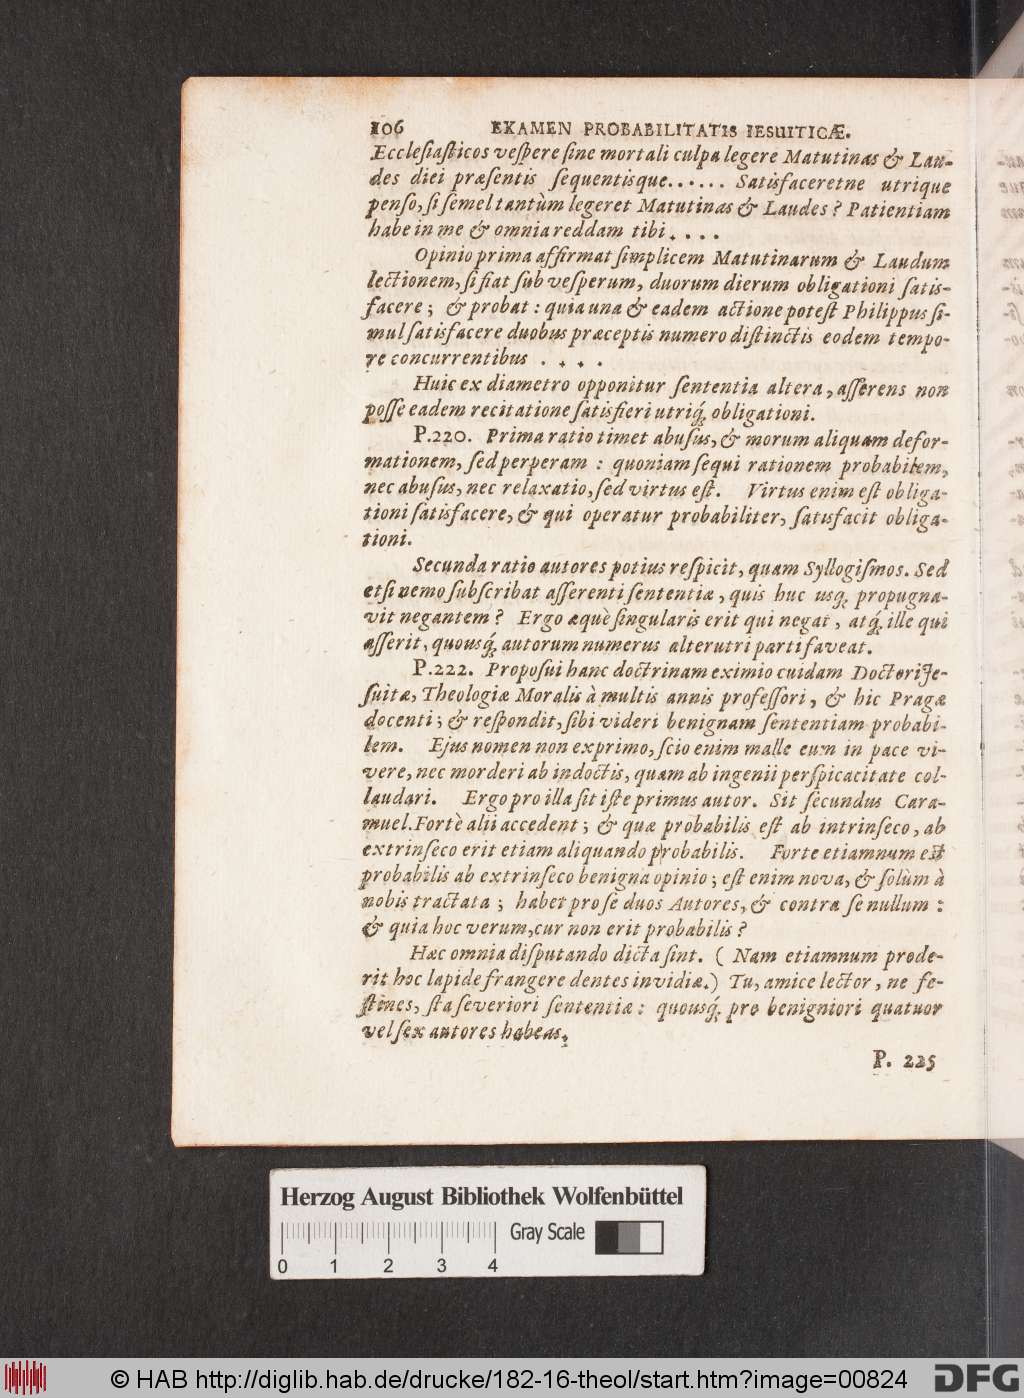 106 EXAMEN PROBABILITATIS IESUITICÆ.
Ecclesiasticos vespere sine mortali culpa legere Matutinas & Lau-
des diei præsentis sequentisque...... Satisfaceretne utrique
penso, si semel tantùm legeret Matutinas & Laudes? Patientiam
habe in me & omnia reddam tibi....
Opinio prima affirmat simplicem Matutinarum & Laudum
lectionem, si fiat sub vesperum, duorum dierum obligationi satis-
facere; & probat: quia una & eadem actione potest Philippus si-
mul satisfacere duobus præceptis numero distinctis eodem tempo-
re concurrentibus ....
Huic ex diametro opponitur sententia altera, asserens non
posse eadem recitatione satisfieri utriq́; obligationi.
P.220. Prima ratio timet abusus, & morum aliquam defor-
mationem, sed perperam: quoniam sequi rationem probabilem,
nec abusus, nec relaxatio, sed virtus est. Virtus enim est obliga-
tioni satisfacere, & qui operatur probabiliter, satisfacit obliga-
tioni.
Secunda ratio autores potius respicit, quam Syllogismos. Sed
etsi nemo subscribat asserenti sententiæ, quis huc usq; propugna-
vit negantem? Ergo æquè singularis erit qui negat, atq́; ille qui
asserit, quousq́; autorum numerus alterutri parti faveat.
P.222. Proposui hanc doctrinam eximio cuidam Doctori Je-
suitæ, Theologiæ Moralis à multis annis professori, & hic Pragæ
docenti; & respondit, sibi videri benignam sententiam probabi-
lem. Ejus nomen non exprimo, scio enim malle eum in pace vi-
vere, nec morderi ab indoctis, quam ab ingenii perspicacitate col-
laudari. Ergo pro illa sit iste primus autor. Sit secundus Cara-
muel. Fortè alii accedent; & quæ probabilis est ab intrinseco, ab
extrinseco erit etiam aliquando probabilis. Forte etiamnum est
probabilis ab extrinseco benigna opinio; est enim nova, & solùm à
nobis tractata; habet pro se duos Autores, & contra se nullum:
& quia hoc verum, cur non erit probabilis?
Hæc omnia disputando dicta sint. (Nam etiamnum prode-
rit hoc lapide frangere dentes invidiæ.) Tu, amice lector, ne fe-
stines, sta severiori sententiæ: quousq́; pro benigniori quatuor
vel sex autores habeas.
P. 225
Herzog August Bibliothek Wolfenbüttel
Gray Scale
0 1 2 3 4
© HAB http://diglib.hab.de/drucke/182-16-theol/start.htm?image=00824
DFG